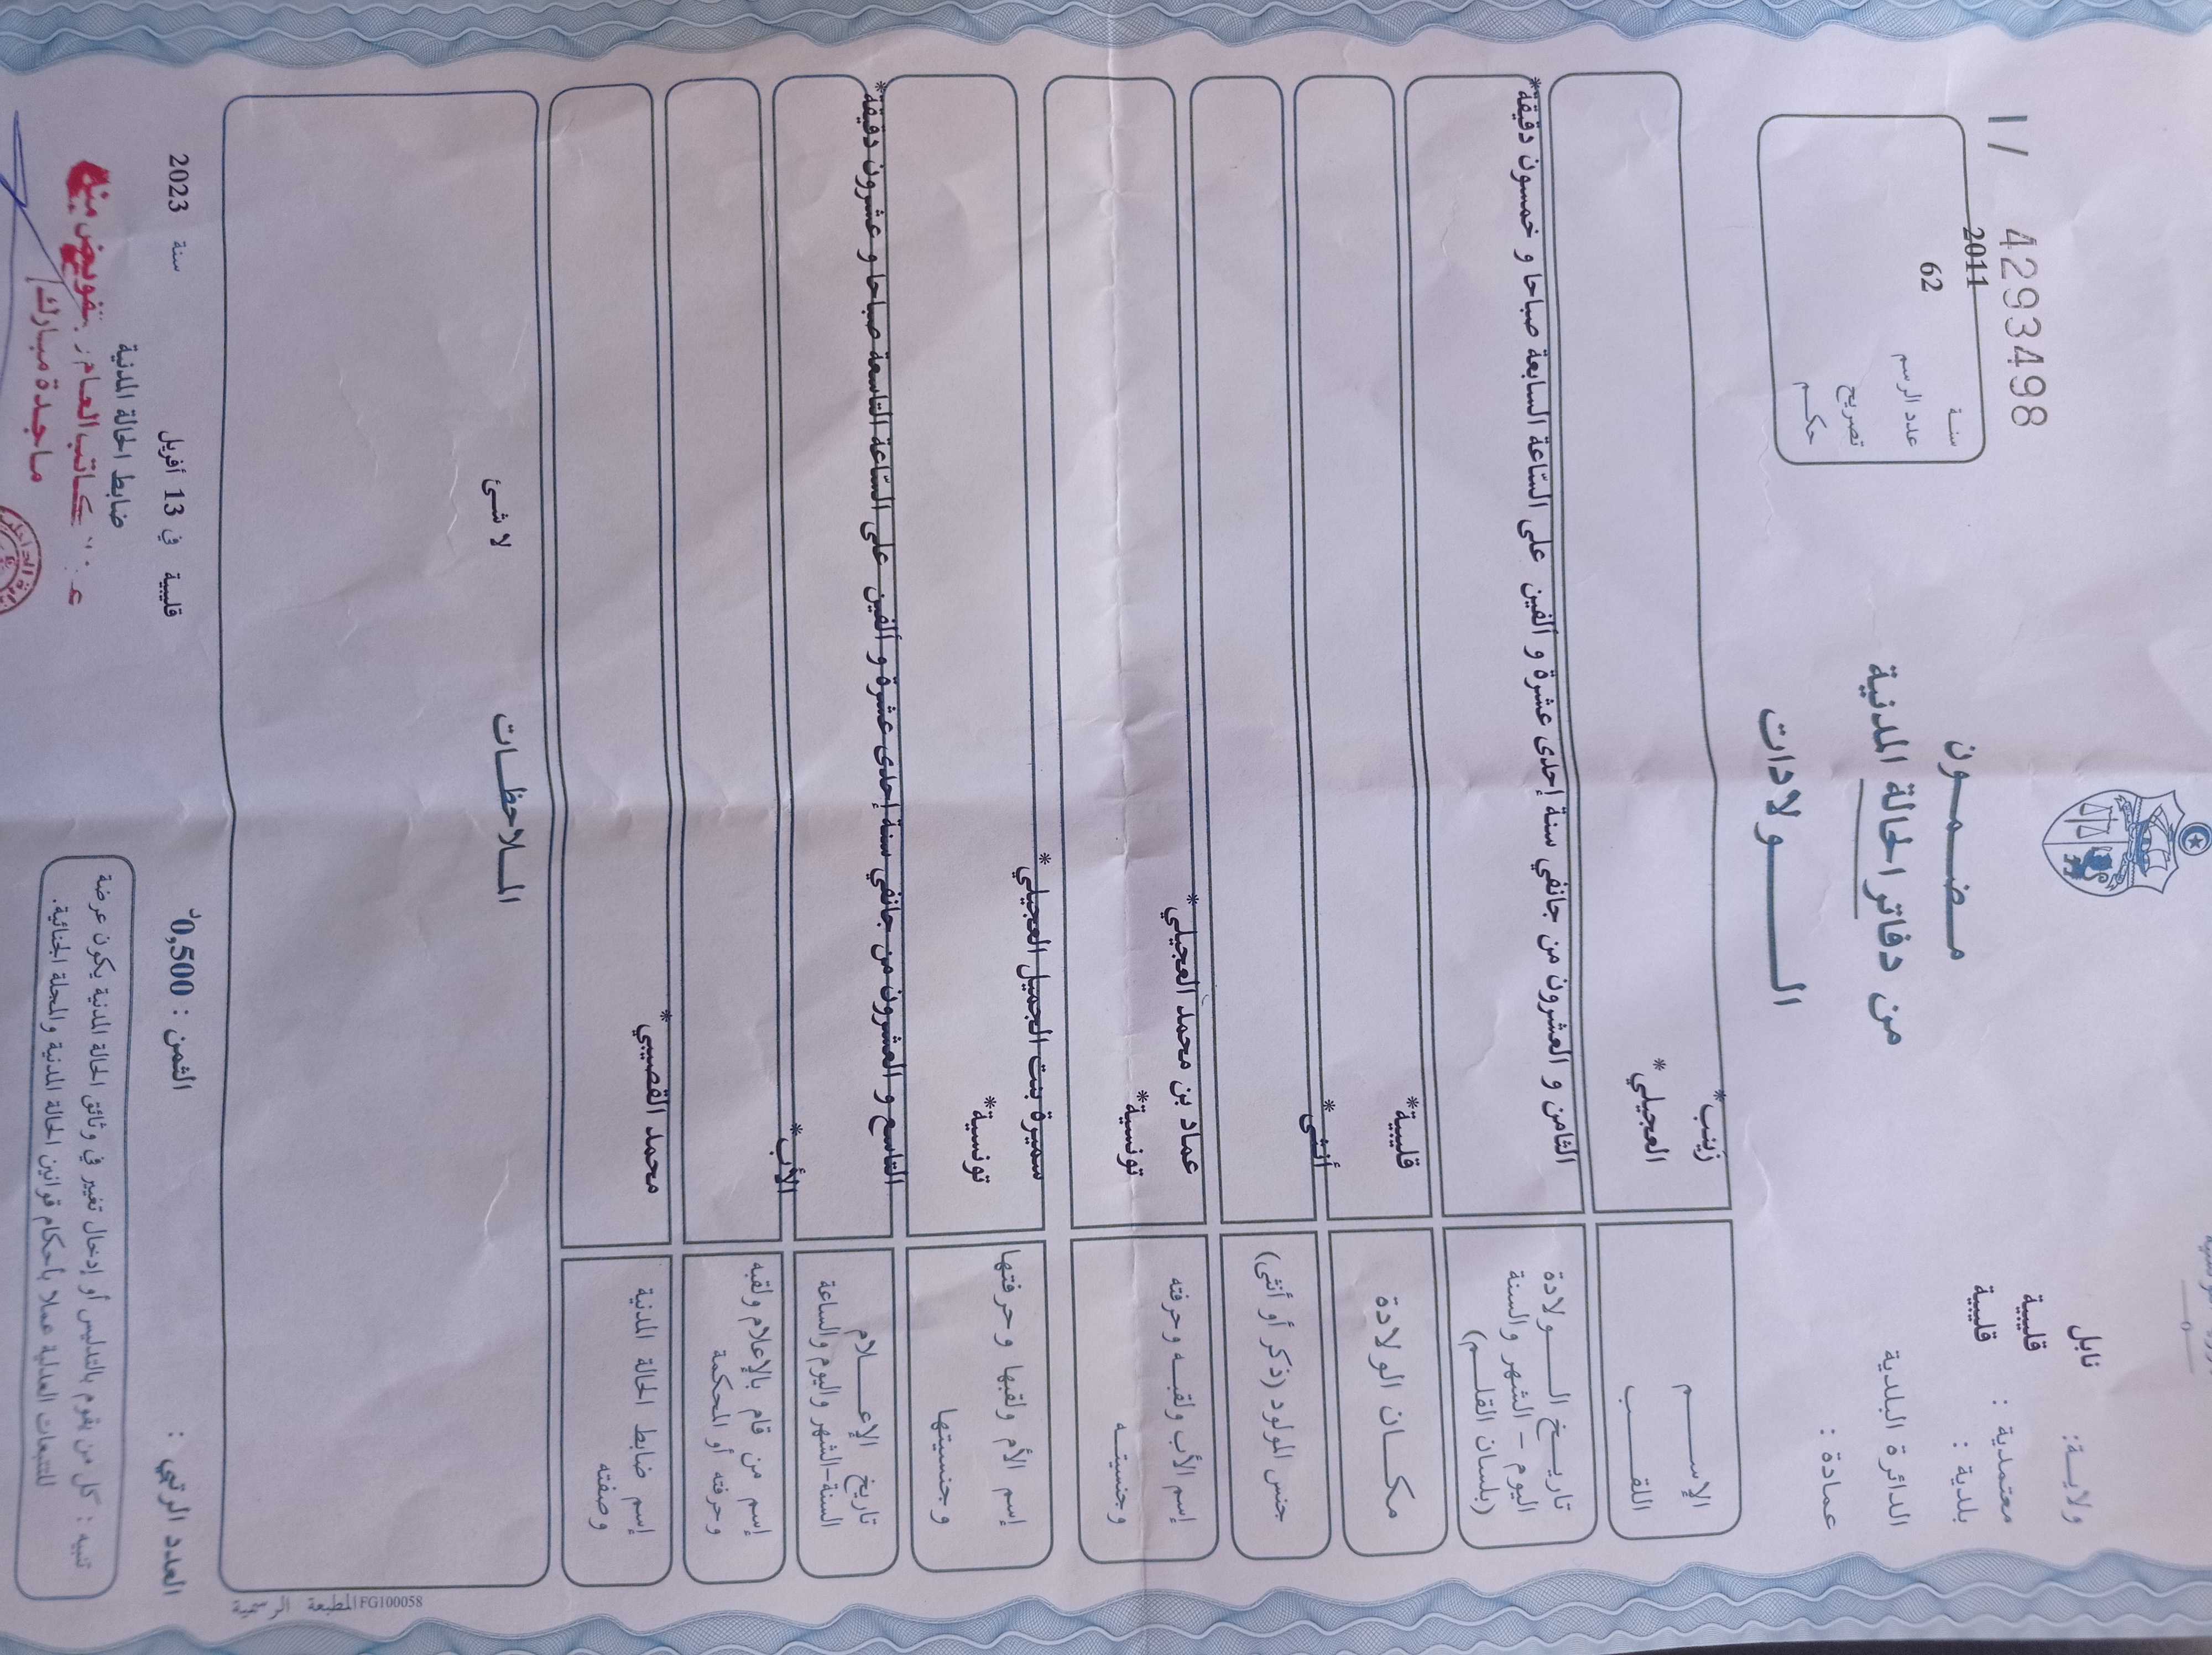 ولايـة: نابل
معتمدية : قليبية
بلدية : قليبية
الدائرة البلدية
عمادة :
مـضـمـون
من دفاتر الحالة المدنية
الـولادات
I / 4293498
سنـة 2011
عدد الرسم 62
تصريح
حكـم
الإسـم زينب*
اللقـب العجيلي*
تاريـخ الـولادة
اليوم - الشهر والسنة
(بلسان القلـم)
الثامن و العشرون من جانفي سنة إحدى عشرة و ألفين على السّاعة السابعة صباحا و خمسون دقيقة*
مكـان الولادة قليبية*
جنس المولود (ذكر أو أنثى) أنثى*
إسم الأب ولقبـه وحرفته عماد بن محمد العجيلي*
وجنسيتـه تونسية*
إسم الأم ولقبها وحرفتها سميرة بنت الجميل العجيلي*
وجنسيتها تونسية*
تاريخ الإعـلام
السنة-الشهر واليوم والساعة
التاسع و العشرون من جانفي سنة إحدى عشرة و ألفين على السّاعة التاسعة صباحا و عشرون دقيقة*
إسم من قام بالإعلام ولقبه
وحرفته أو المحكمة
الأب*
إسم ضابط الحالة المدنية
وصفته
محمد القصيبي*
المـلاحظـات
لا شـئ
المطبعة الرسمية FG100058
العدد الرتبي :
الثمن : 0,500د
قليبية في 13 أفريل سنة 2023
ضابط الحالة المدنية
تنبيه : كل من يقوم بالتدليس أو إدخال تغيير في وثائق الحالة المدنية يكون عرضة
للتتبعات العدلية عملا بأحكام قوانين الحالة المدنية والمجلة الجنائية.
الكاتب العام بتفويض منه
ماجدة مبارك